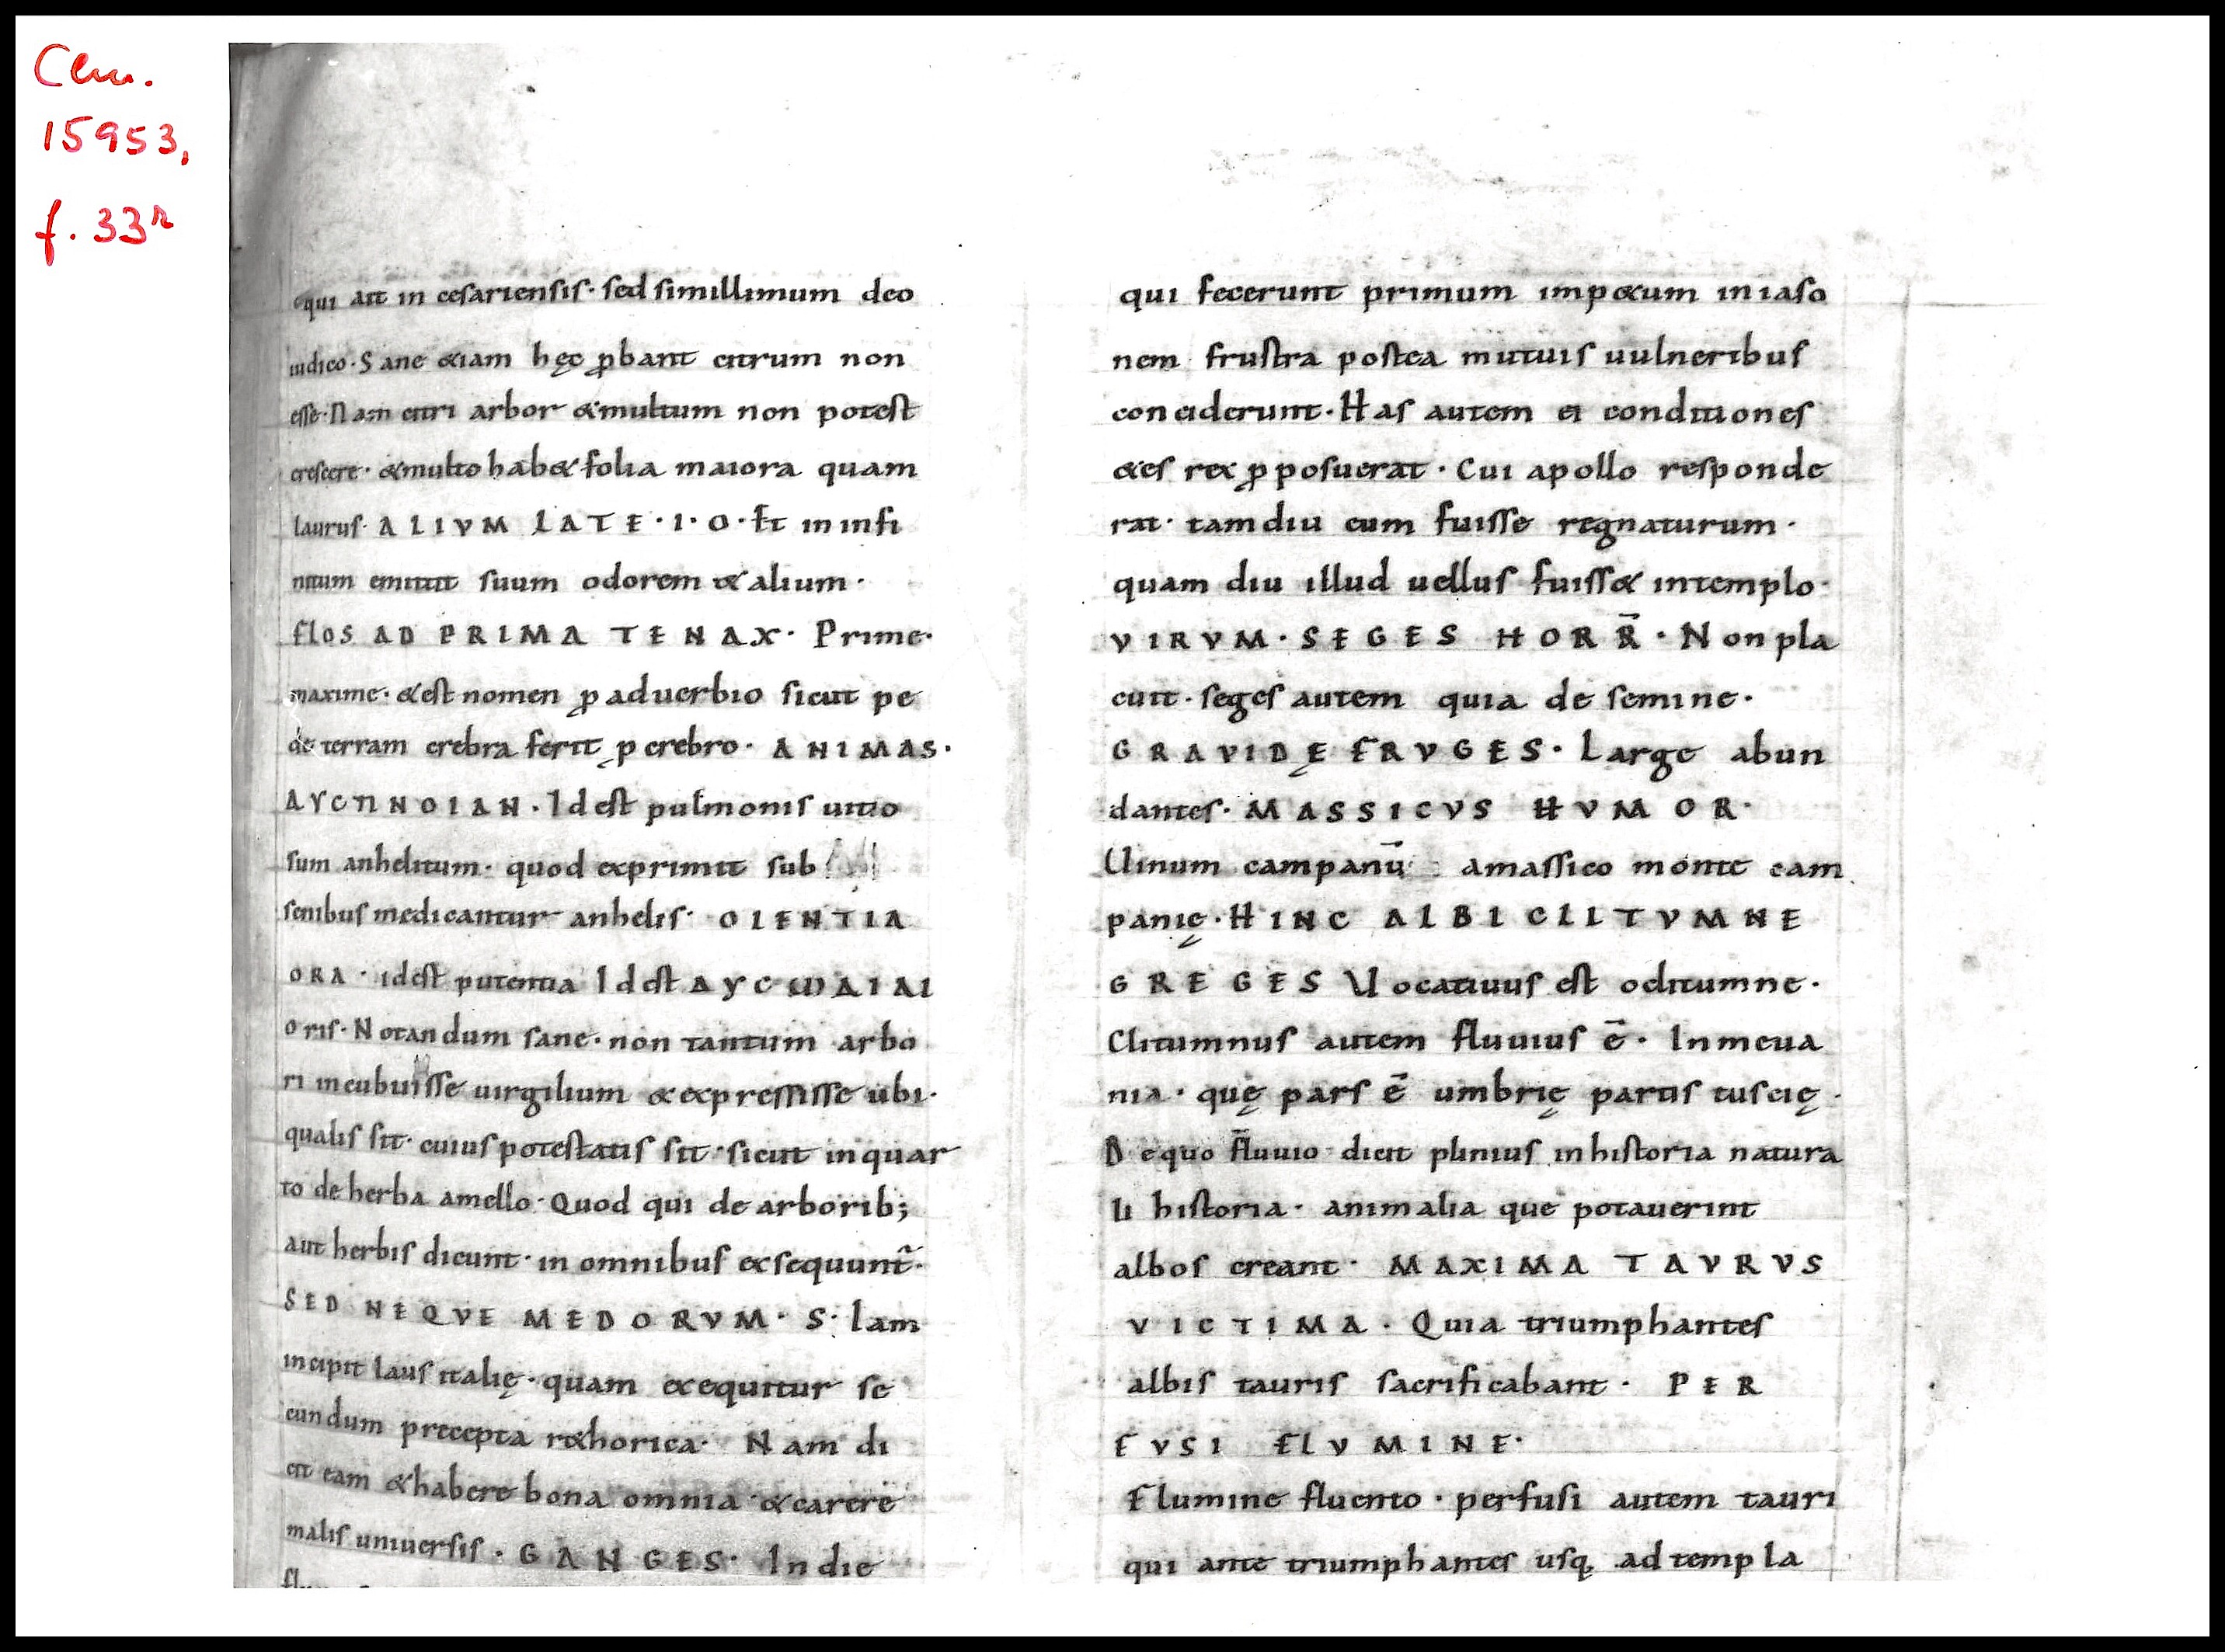 Clm.
15953,
f. 33r
qui ait in cesariensis· sed simillimum deo
iudico· Sane &iam hęc ꝓbant citrum non
esse· Nam citri arbor & multum non potest
crescere· & multo hab& folia maiora quam
laurus· ALIVM LATE·I·O· Et in infi
nitum emittit suum odorem & alium·
FLOS AD PRIMA TENAX· Prime·
maxime· & est nomen ꝓ aduerbio sicut pe
de terram crebra ferit ꝓ crebro· ANIMAS·
ΑΥCΠNOIAN· Id est pulmonis uitio
sum anhelitum· quod exprimit sub
senibus medicantur anhelis· OLENTIA
ORA· id est putentia Id est
oris· Notandum sane· non tantum arbo
ri incubuisse uirgilium & expressisse ubi·
qualis sit· cuius potestatis sit· sicut in quar
to de herba amello· Quod qui de arborib;
aut herbis dicunt· in omnibus exsequunt̃·
SED NEQVE MEDORVM· S· Iam
incipit laus italię· quam exequitur se
cundum precepta r&horica· Nam di
cit eam & habere bona omnia· & carere
malis uniuersis· GANGES· Indie
qui fecerunt primum imp&um in iaso
nem frustra postea mutuis uulneribus
conciderunt· Has autem ei conditiones
&es rex ꝓposuerat· Cui apollo responde
rat· tamdiu eum fuisse regnaturum·
quam diu illud uellus fuiss& in templo·
VIRVM· SEGES HORR̄· Non pla
cuit· seges autem quia de semine·
GRAVIDĘ FRVGES· Large abun
dantes· MASSICVS HVMOR·
Uinum campanū a massico monte cam
panię· HINC ALBI CLITVMNE
GREGES Uocatiuus est o clitumne·
Clitumnus autem fluuius ē· In meua
nia· quę pars ē umbrię partis tuscię·
De quo fluuio dicit plinius in historia natura
li historia· animalia que potauerint
albos creant· MAXIMA TAVRVS
VICTIMA· Quia triumphantes
albis tauris sacrificabant· PER
FVSI FLVMINE·
Flumine fluento· perfusi autem tauri
qui ante triumphantes usq; ad templa